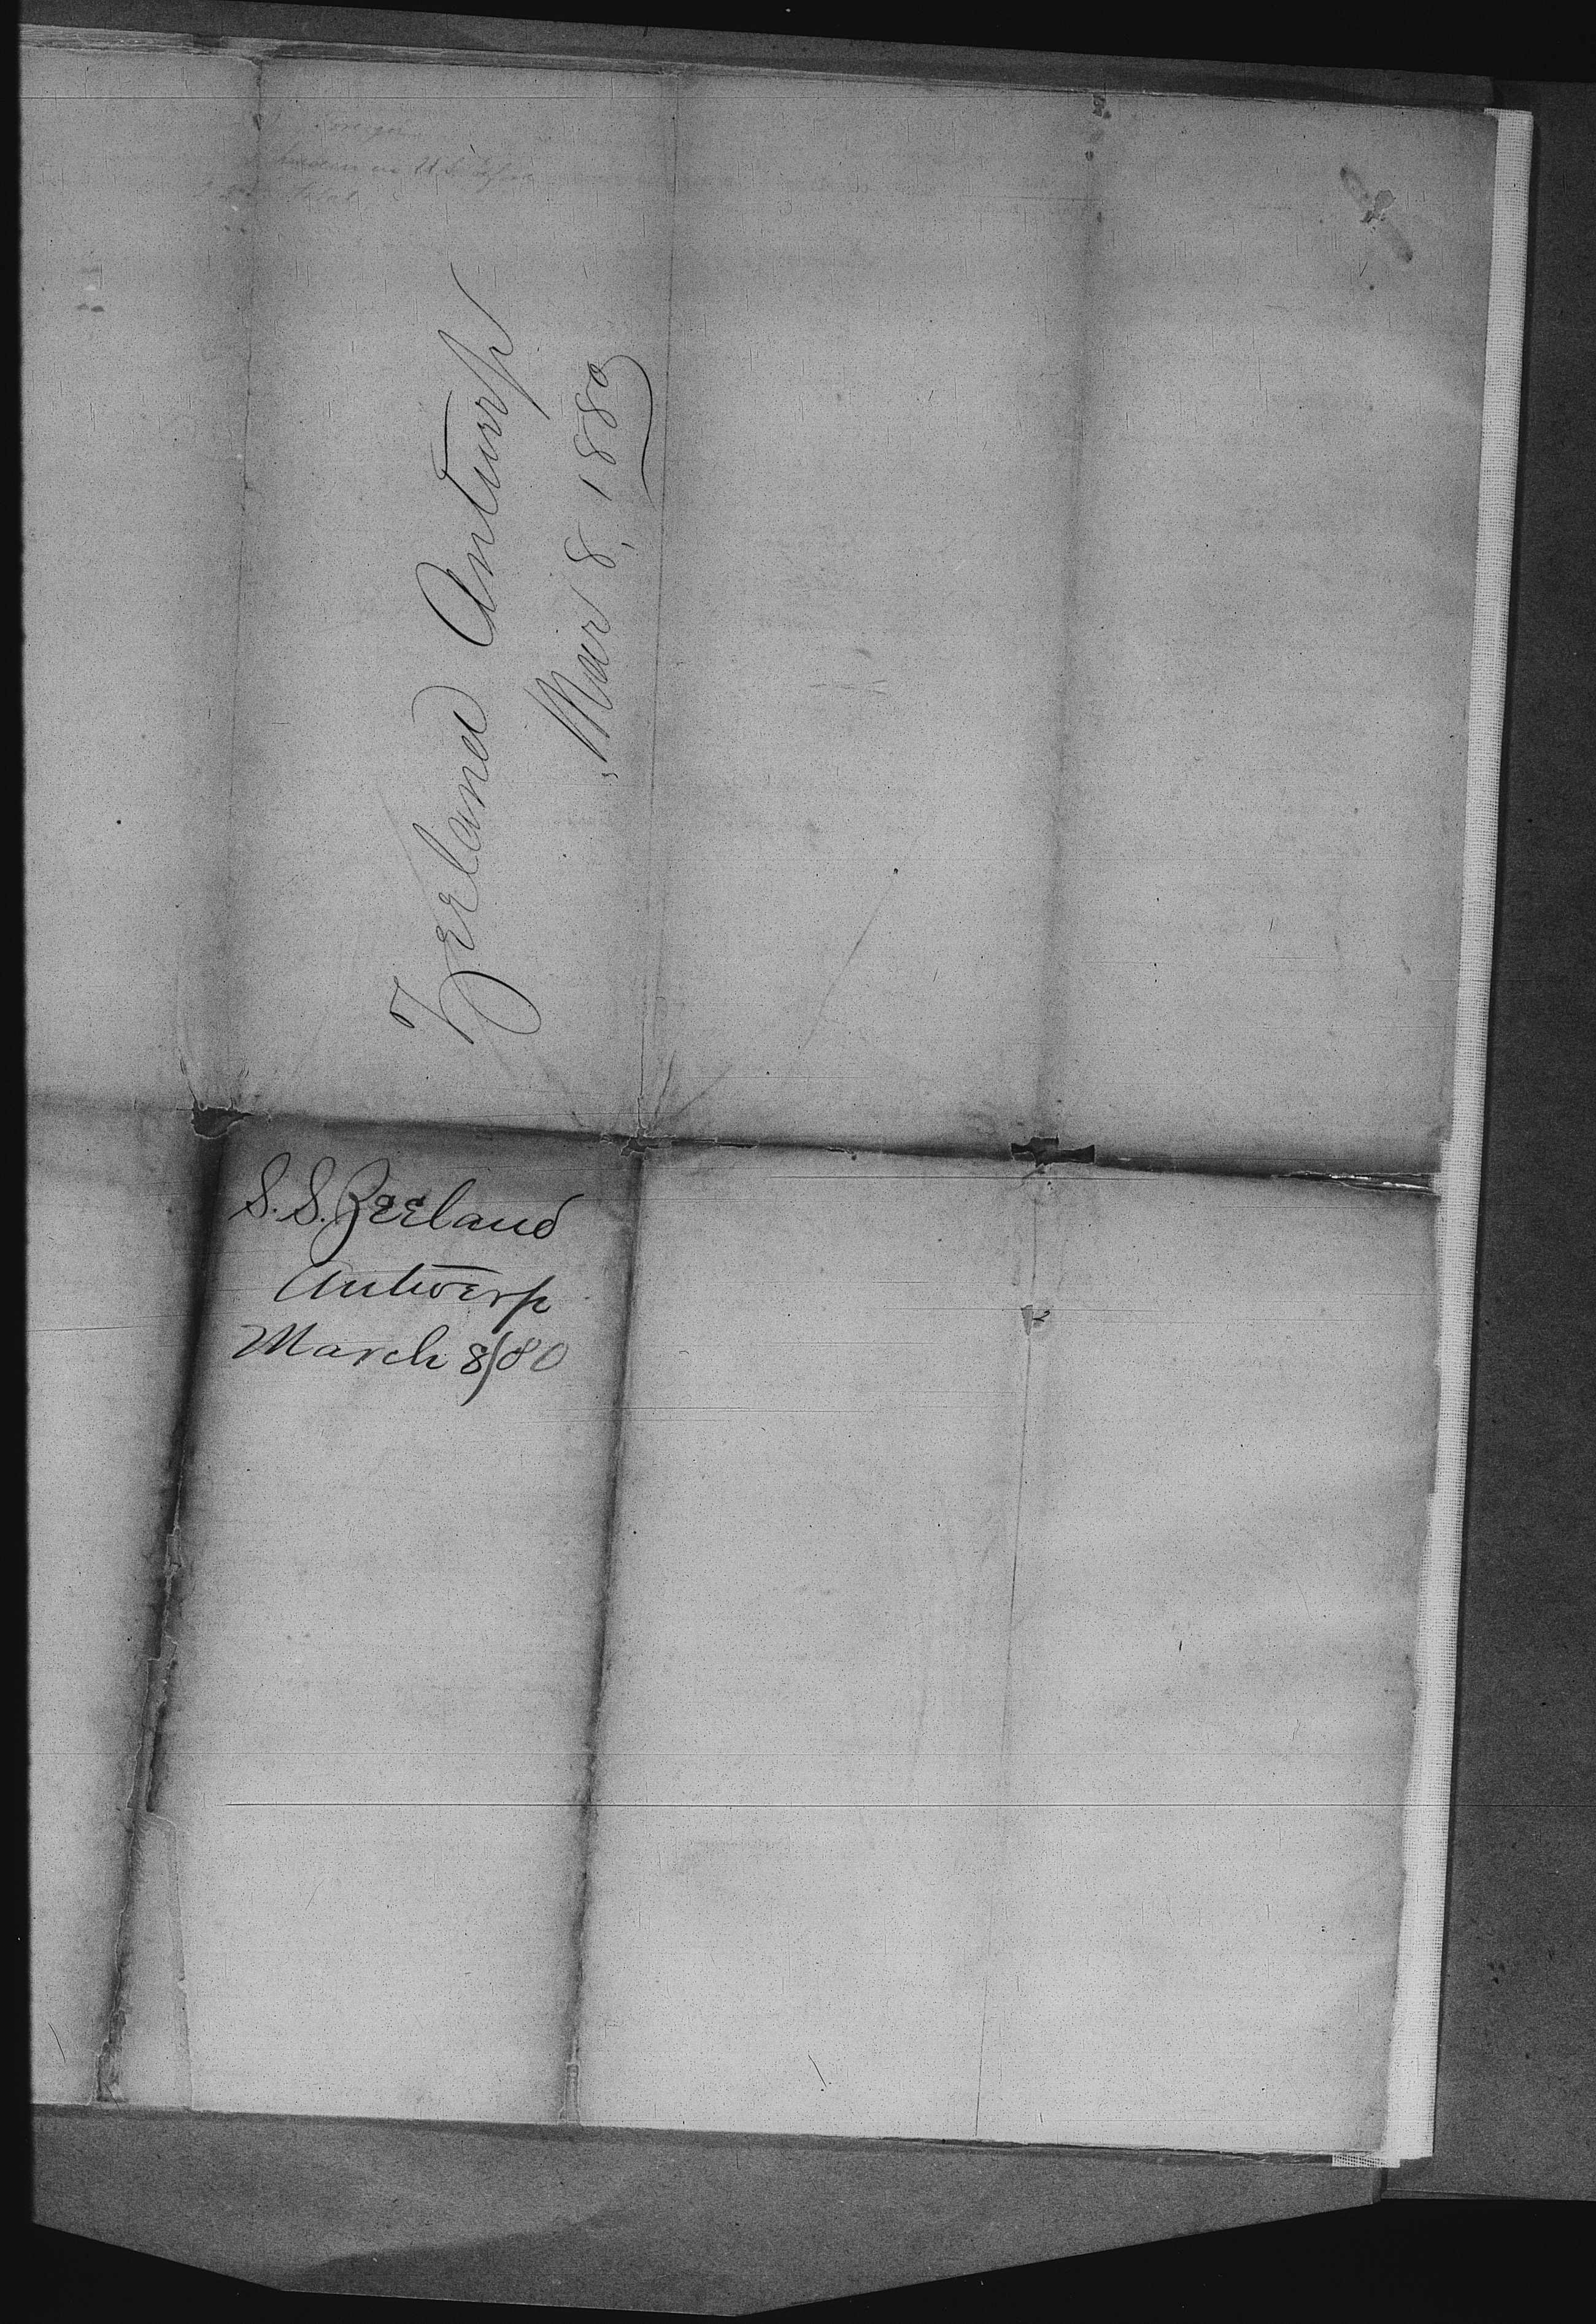 Zeeland Antwerp
Mar 8, 1880
S.S. Zeeland
Antwerp
March 8/80